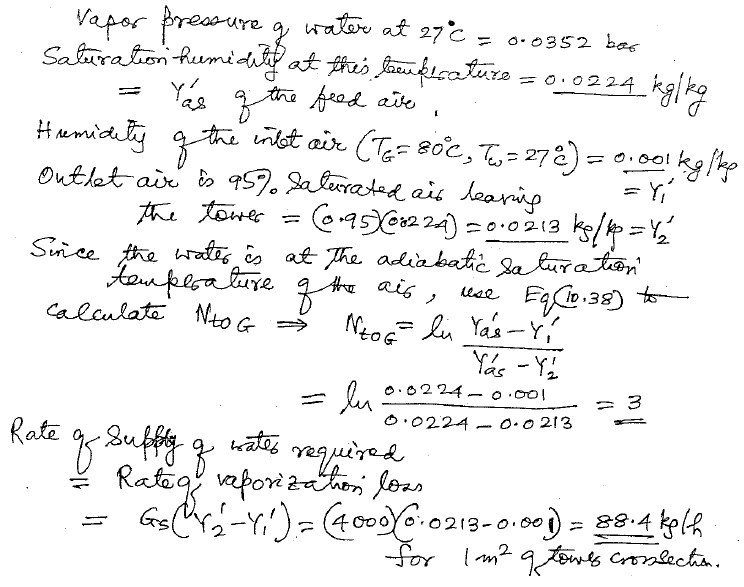 Vapor pressure of water at 27°C = 0.0352 bar
Saturation humidity at this temperature = 0.0224 kg/kg
= Y'as of the feed air,
Humidity of the inlet air (TG = 80°C, Tw = 27°C) = 0.001 kg/kg
Outlet air is 95% saturated air leaving = Y1'
the tower = (0.95)(0.0224) = 0.0213 kg/kg = Y2'
Since the water is at the adiabatic saturation
temperature of the air, use Eq (10.38) to
calculate NtoG ⇒ NtoG = ln (Y'as − Y1')/(Y'as − Y2')
= ln (0.0224 − 0.001)/(0.0224 − 0.0213) = 3
Rate of Supply of water required
= Rate of vaporization loss
= Gs(Y2' − Y1') = (4000)(0.0213 − 0.001) = 88.4 kg/h
for 1 m² of tower cross section.